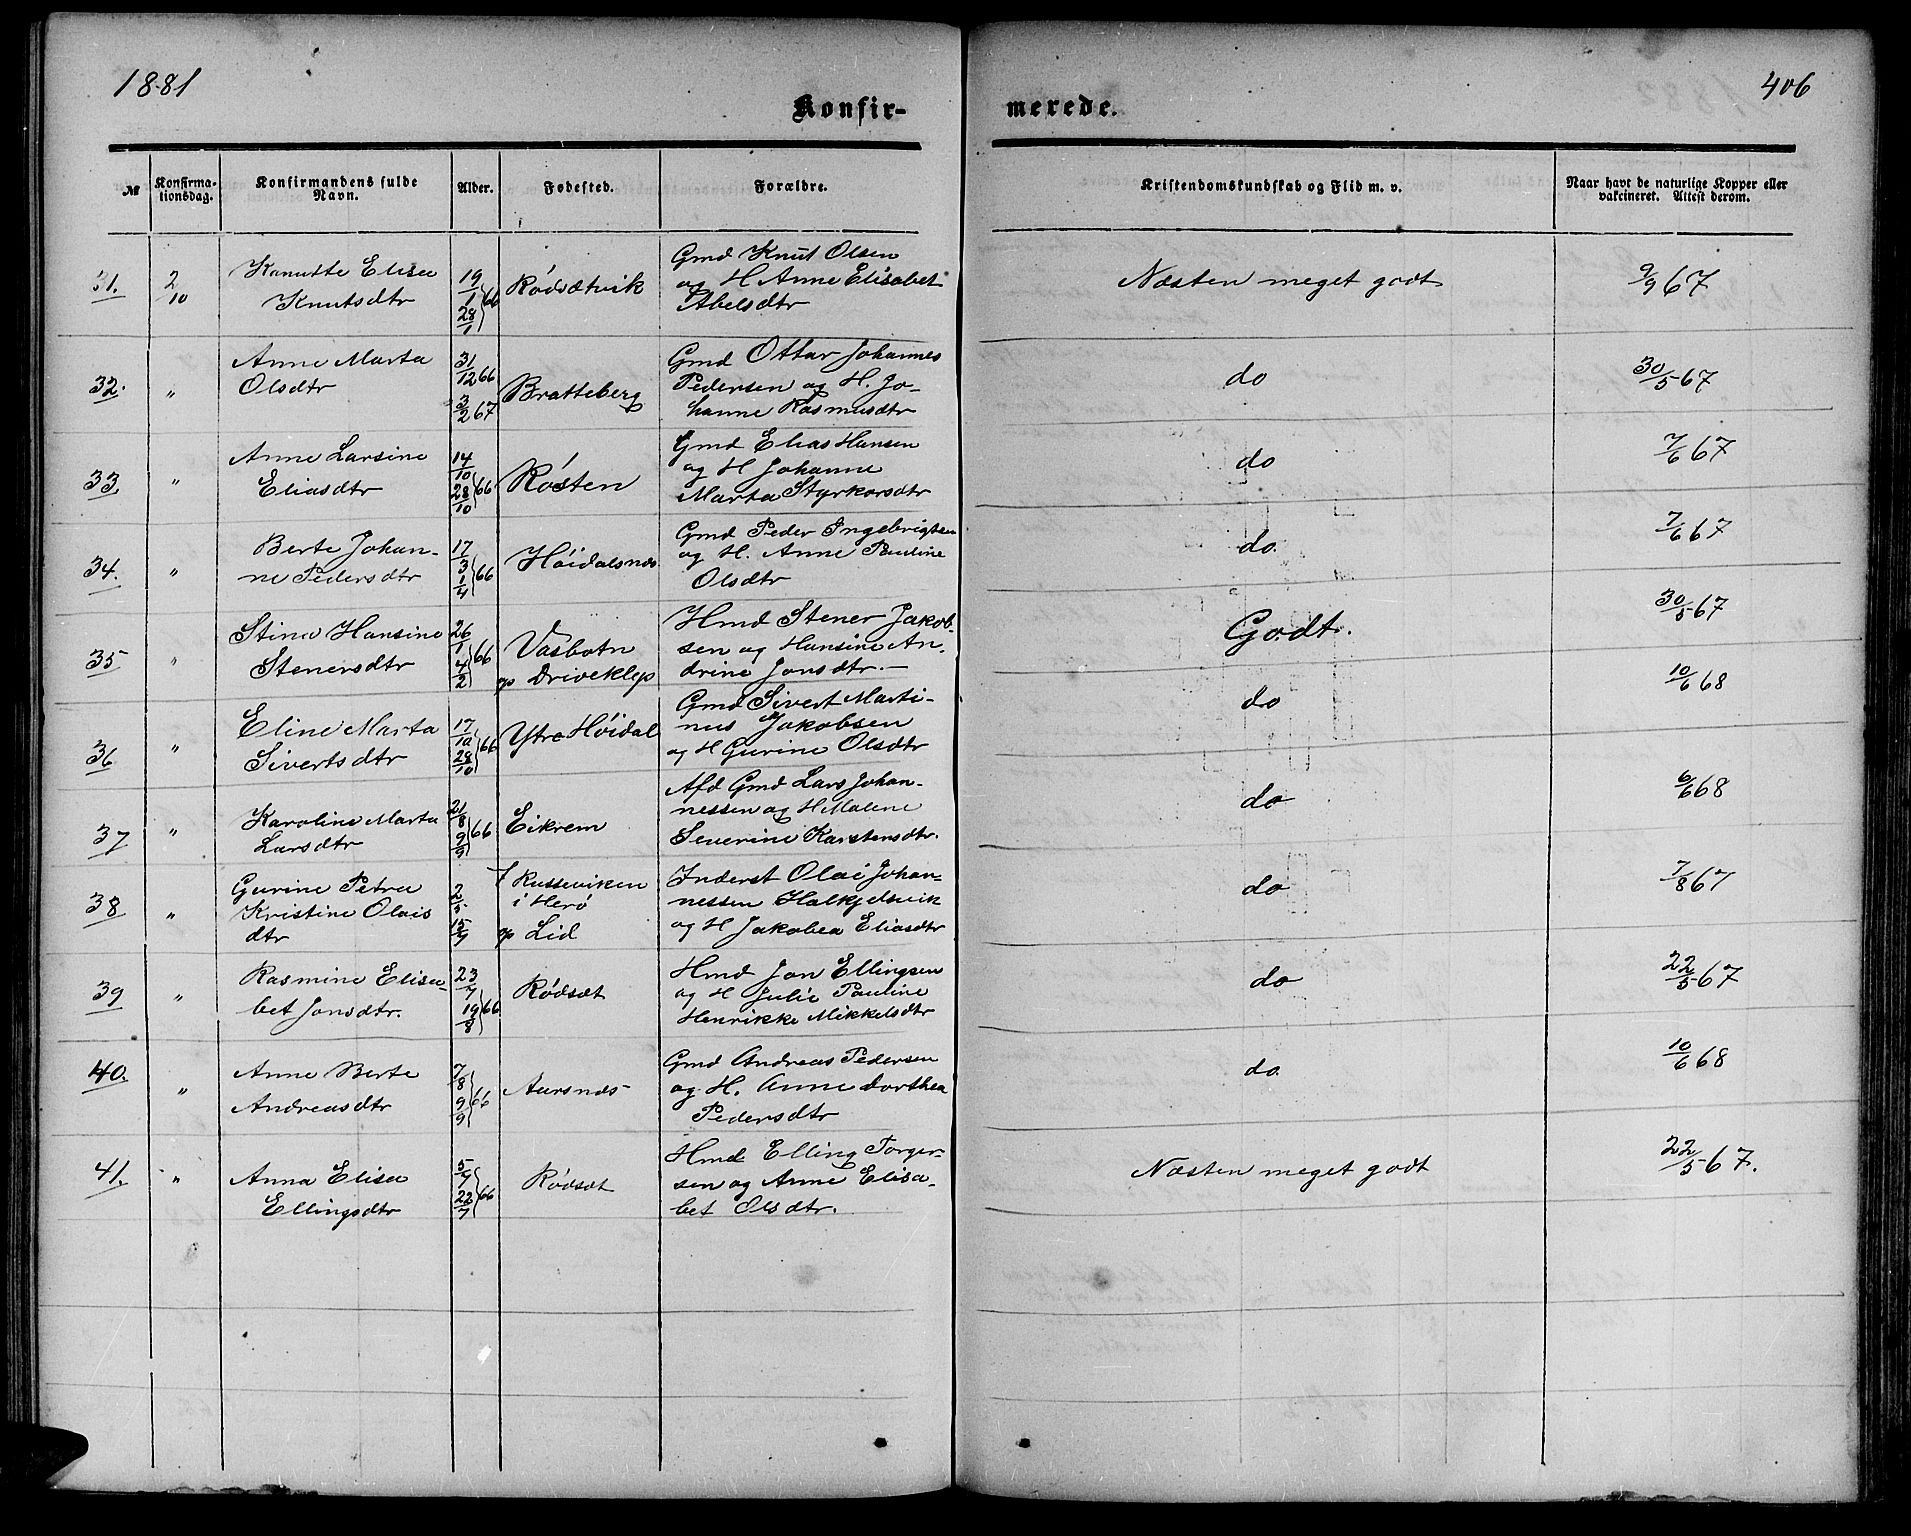 1881
406
Konfir-
merede.
№
Konfirma-
tionsdag.
Konfirmandens fulde
Navn.
Alder.
Fødested.
Forældre.
Kristendomskundskab og Flid m. v.
Naar havt de naturlige Kopper eller
vakcineret. Attest derom.
31. 2/10 Knutte Elisa Knutsdtr 19/1 28/1 } 66 Rødsætvik Gmd Knut Olsen
og H Anne Elisabet
Abelsdtr Næsten meget godt 9/9 67
32. " Anne Marta
Olsdtr 31/12 66 3/2 67 Bratteberg Gmd Ottar Johannes
Pedersen og H. Jo-
hanne Rasmusdtr do 30/5 67
33. " Anne Larsine
Eliasdtr 14/10 28/10 } 66 Røsten Gmd Elias Hansen
og H Johanne
Marta Styrkorsdtr do 7/6 67
34. " Berte Johan-
ne Pedersdtr 17/3 1/4 } 66 Høidalsnæs Gmd Peder Ingebrigtsen
og H. Anne Pauline
Olsdtr do. 7/6 67
35 " Stina Hansine
Stenersdtr 26/1 4/2 } 66 Vasbotn
op Driveklep Hmd Stener Jakob-
sen og Hansine An-
drine Jonsdtr.- Godt. 30/5 67
36 " Eline Marta
Sivertsdtr 17/10 28/10 } 66 Ytre Høidal Gmd Sivert Marti-
nus Jakobsen
og H Gurine Olsdtr do 10/6 68
37 " Karoline Marta
Larsdtr 21/8 9/9 } 66 Eikrem Afd Gmd Lars Johan-
nessen og H Malene
Severine Karstensdtr. do 6/6 68
38 " Gurine Petra
Kristine Olais
dtr 2/5 15/7 f Russeviken
i Herø
op Lid Inderst Olai Johan-
nessen Halkjelsvik
og H Jakobea Eliasdtr do 7/8 67
39 " Rasmine Elisa-
bet Jonsdtr. 23/7 19/8 } 66 Rødsæt Hmd Jon Ellingsen
og H Julie Pauline
Henrikke Mikkelsdtr do 22/5 67
40. " Anne Berte
Andreasdtr 7/8 9/9 } 66 Aarsnæs Gmd Andreas Pedersen
og H. Anne Dorthea
Pedersdtr do. 10/6 68
41. " Anna Elisa
Ellingsdtr 5/7 22/7 } 66 Rødsæt Hmd Elling Torger-
sen og Anne Elisa-
bet Olsdtr. Næsten meget godt 22/5 67.